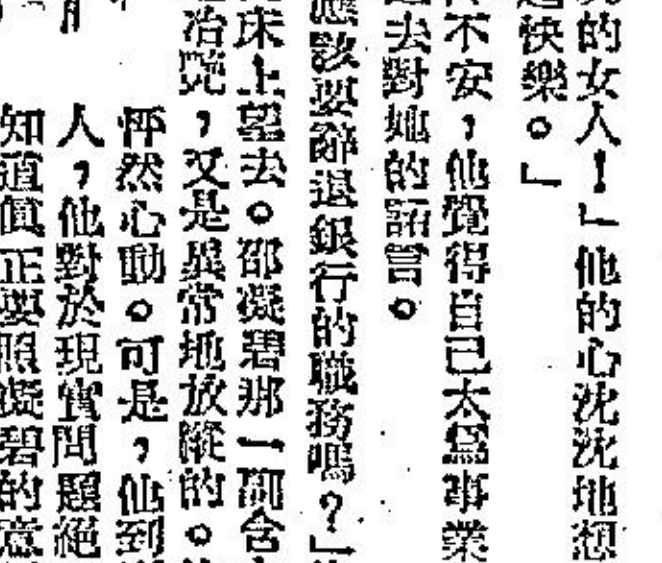 的女人！」他的心沈沈地想
快樂。」
不安，他覺得自己太為事業
去對她的諾言。
應該要辭退銀行的職務嗎？」
床上望去。邵凝碧那一副含
冶艷，又是異常地放縱的。
怦然心動。可是，他到
人，他對於現實問題絕
知道真正要照凝碧的意